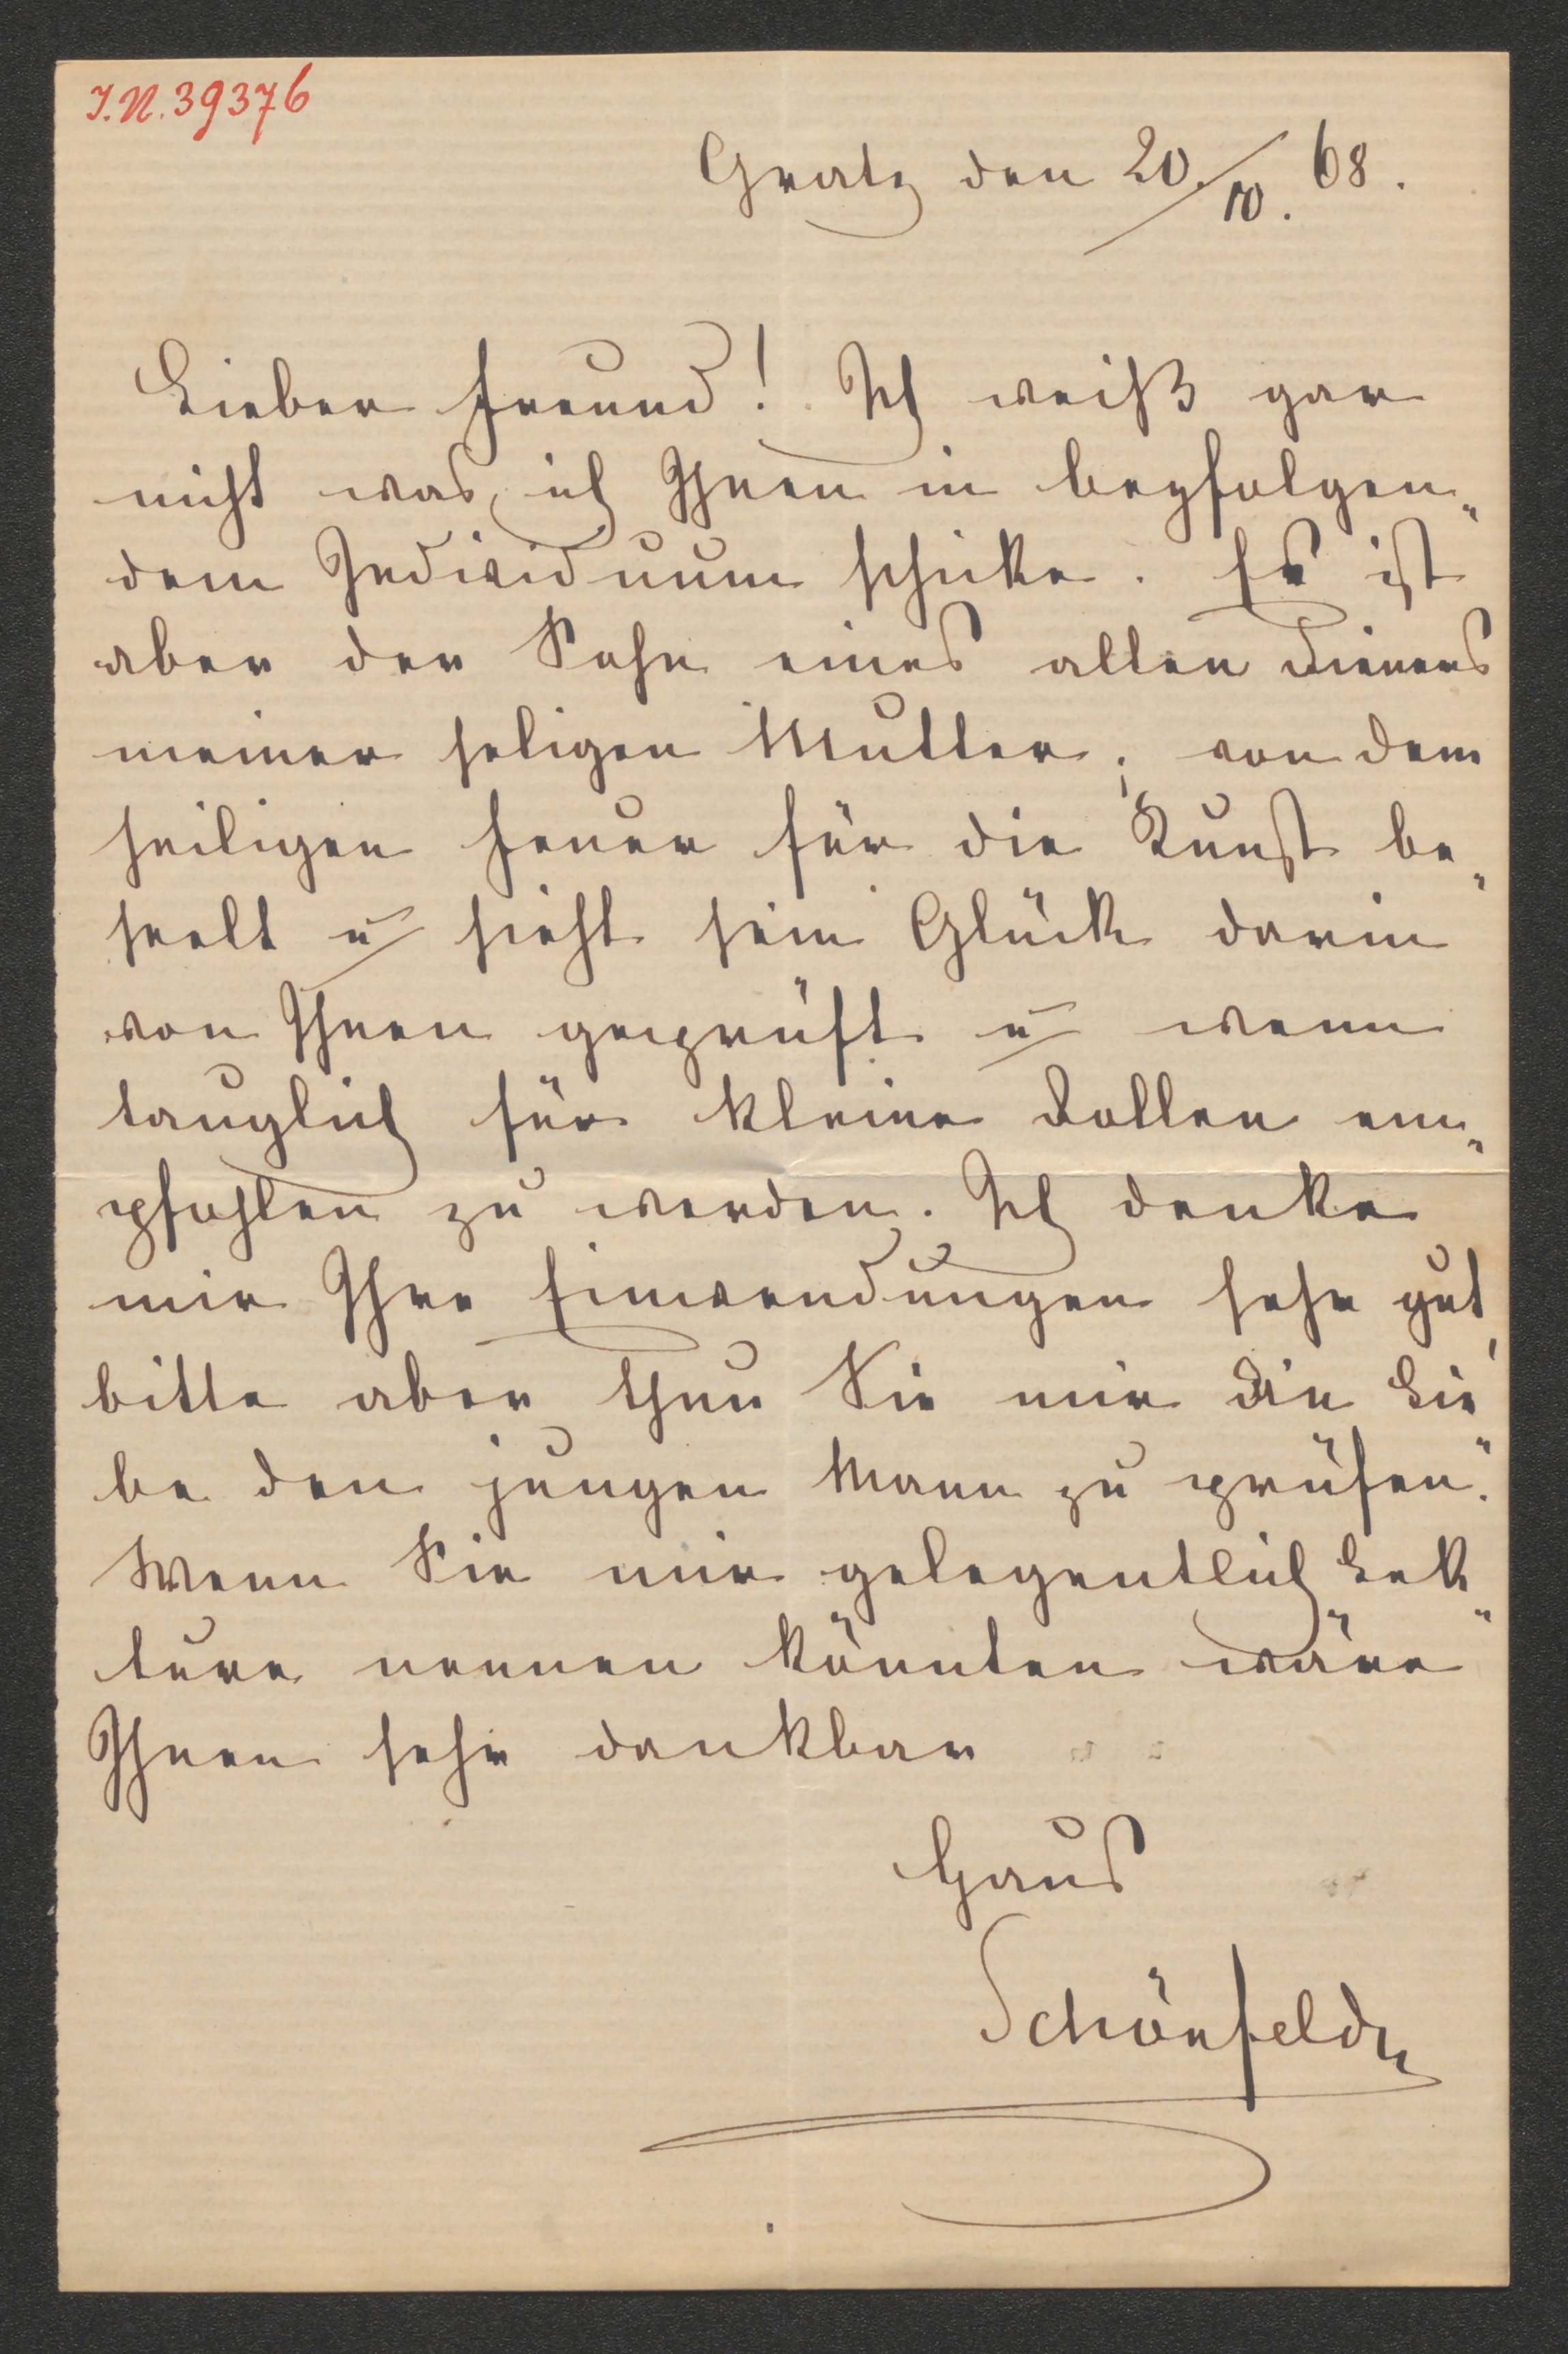 J.N. 39376
Gratz den 20./10. 68.
Lieber Freund! Ich weiß gar
nicht was ich Ihnen in beyfolgen„
dem Individuum schicke. Es ist
aber der Sohn eines alten Dieners
meiner seligen Mutter; von dem
heiligen Feuer für die Kunst be„
seelt u sieht sein Glück darin
von Ihnen geprüft u wenn
tauglich für kleine Rollen em„
pfohlen zu werden. Ich denke
mir Ihre Einwendungen sehr gut,
bitte aber thun Sie mir die Lie„
be den jungen Mann zu prüfen.
Wenn Sie mir gelegentlich Lek„
ture nennen könnten wäre
Ihnen sehr dankbar
Hans
Schönfeld